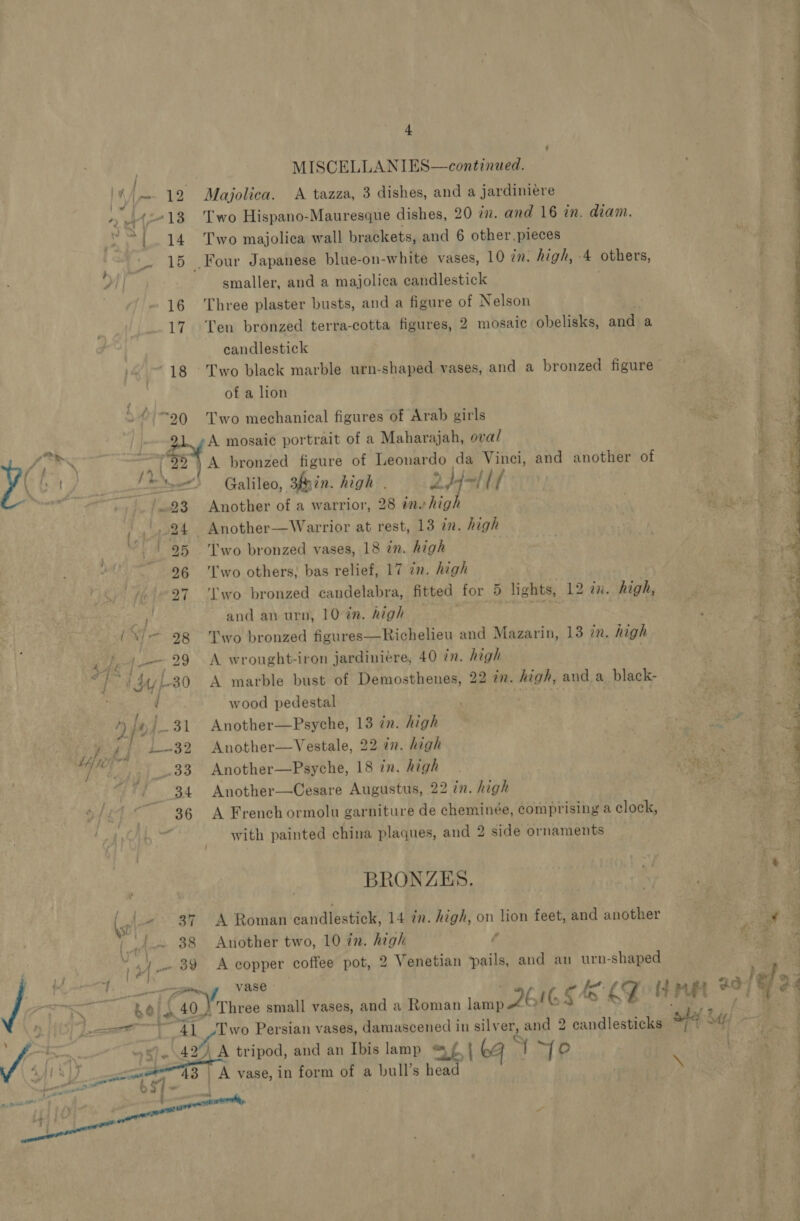 4
MISCELLANIES—continued.
12 Majolica. A tazza, 3 dishes, and a jardinière
13 Two Hispano-Mauresque dishes, 20 in. and 16 in. diam.
14 Two majolica wall brackets, and 6 other pieces
15 Four Japanese blue-on-white vases, 10 in. high, 4 others,
smaller, and a majolica candlestick
16 Three plaster busts, and a figure of Nelson
17 Ten bronzed terra-cotta figures, 2 mosaic obelisks, and a
candlestick
18 Two black marble urn-shaped vases, and a bronzed figure
of a lion
20 Two mechanical figures of Arab girls
21 A mosaic portrait of a Maharajah, oval
22 A bronzed figure of Leonardo da Vinci, and another of
Galileo, in. high
23 Another of a warrior, 28 in. high
24 Another—Warrior at rest, 13 in. high
25 Two bronzed vases, 18 in. high
26 Two others, bas relief, 17 in. high
27 Two bronzed candelabra, fitted for 5 lights, 12 in. high,
and an urn, 10 in. high
28 Two bronzed figures—Richelieu and Mazarin, 13 in. high
29 A wrought-iron jardinière, 40 in. high
30 A marble bust of Demosthenes, 22 in. high, and a black-
wood pedestal
31 Another—Psyche, 13 in. high
32 Another—Vestale, 22 in. high
33 Another—Psyche, 18 in. high
34 Another—Cesare Augustus, 22 in. high
36 A French ormolu garniture de cheminée, comprising a clock,
with painted china plaques, and 2 side ornaments
BRONZES.
37 A Roman candlestick, 14 in. high, on lion feet, and another
38 Another two, 10 in. high
39 A copper coffee pot, 2 Venetian pails, and an urn-shaped
vase
40 Three small vases, and a Roman lamp
41 Two Persian vases, damascened in silver, and 2 candlesticks
42 A tripod, and an Ibis lamp
43 A vase, in form of a bull's head